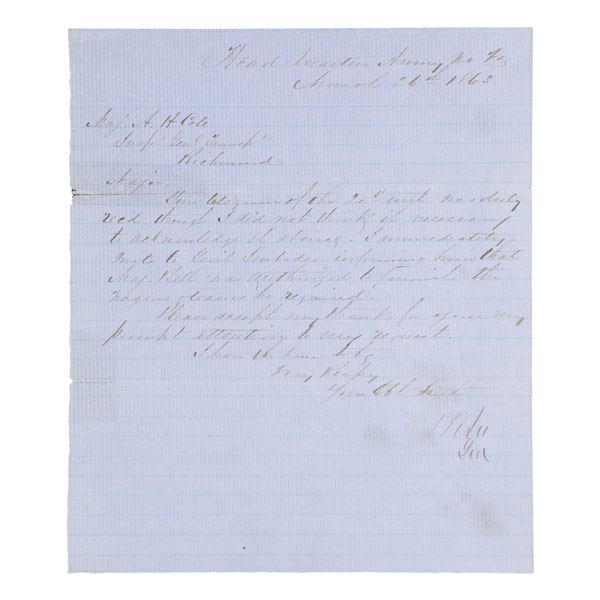 Head Quarters Army No Va
March 26th 1863
Maj. A H Cole
Insp. Genl Transp.
Richmond
Major,
Your telegram of the 20th inst was duly
recd though I did not think it necessary
to acknowledge it at once. I immediately
wrote to Genl Imboden informing him that
Maj. Bell was authorized to furnish the
wagons & teams he required.
Please accept my thanks for your very
prompt attention to my request.
I have the honor to be
Very Respy
Your Obt Servt
R E Lee
Genl